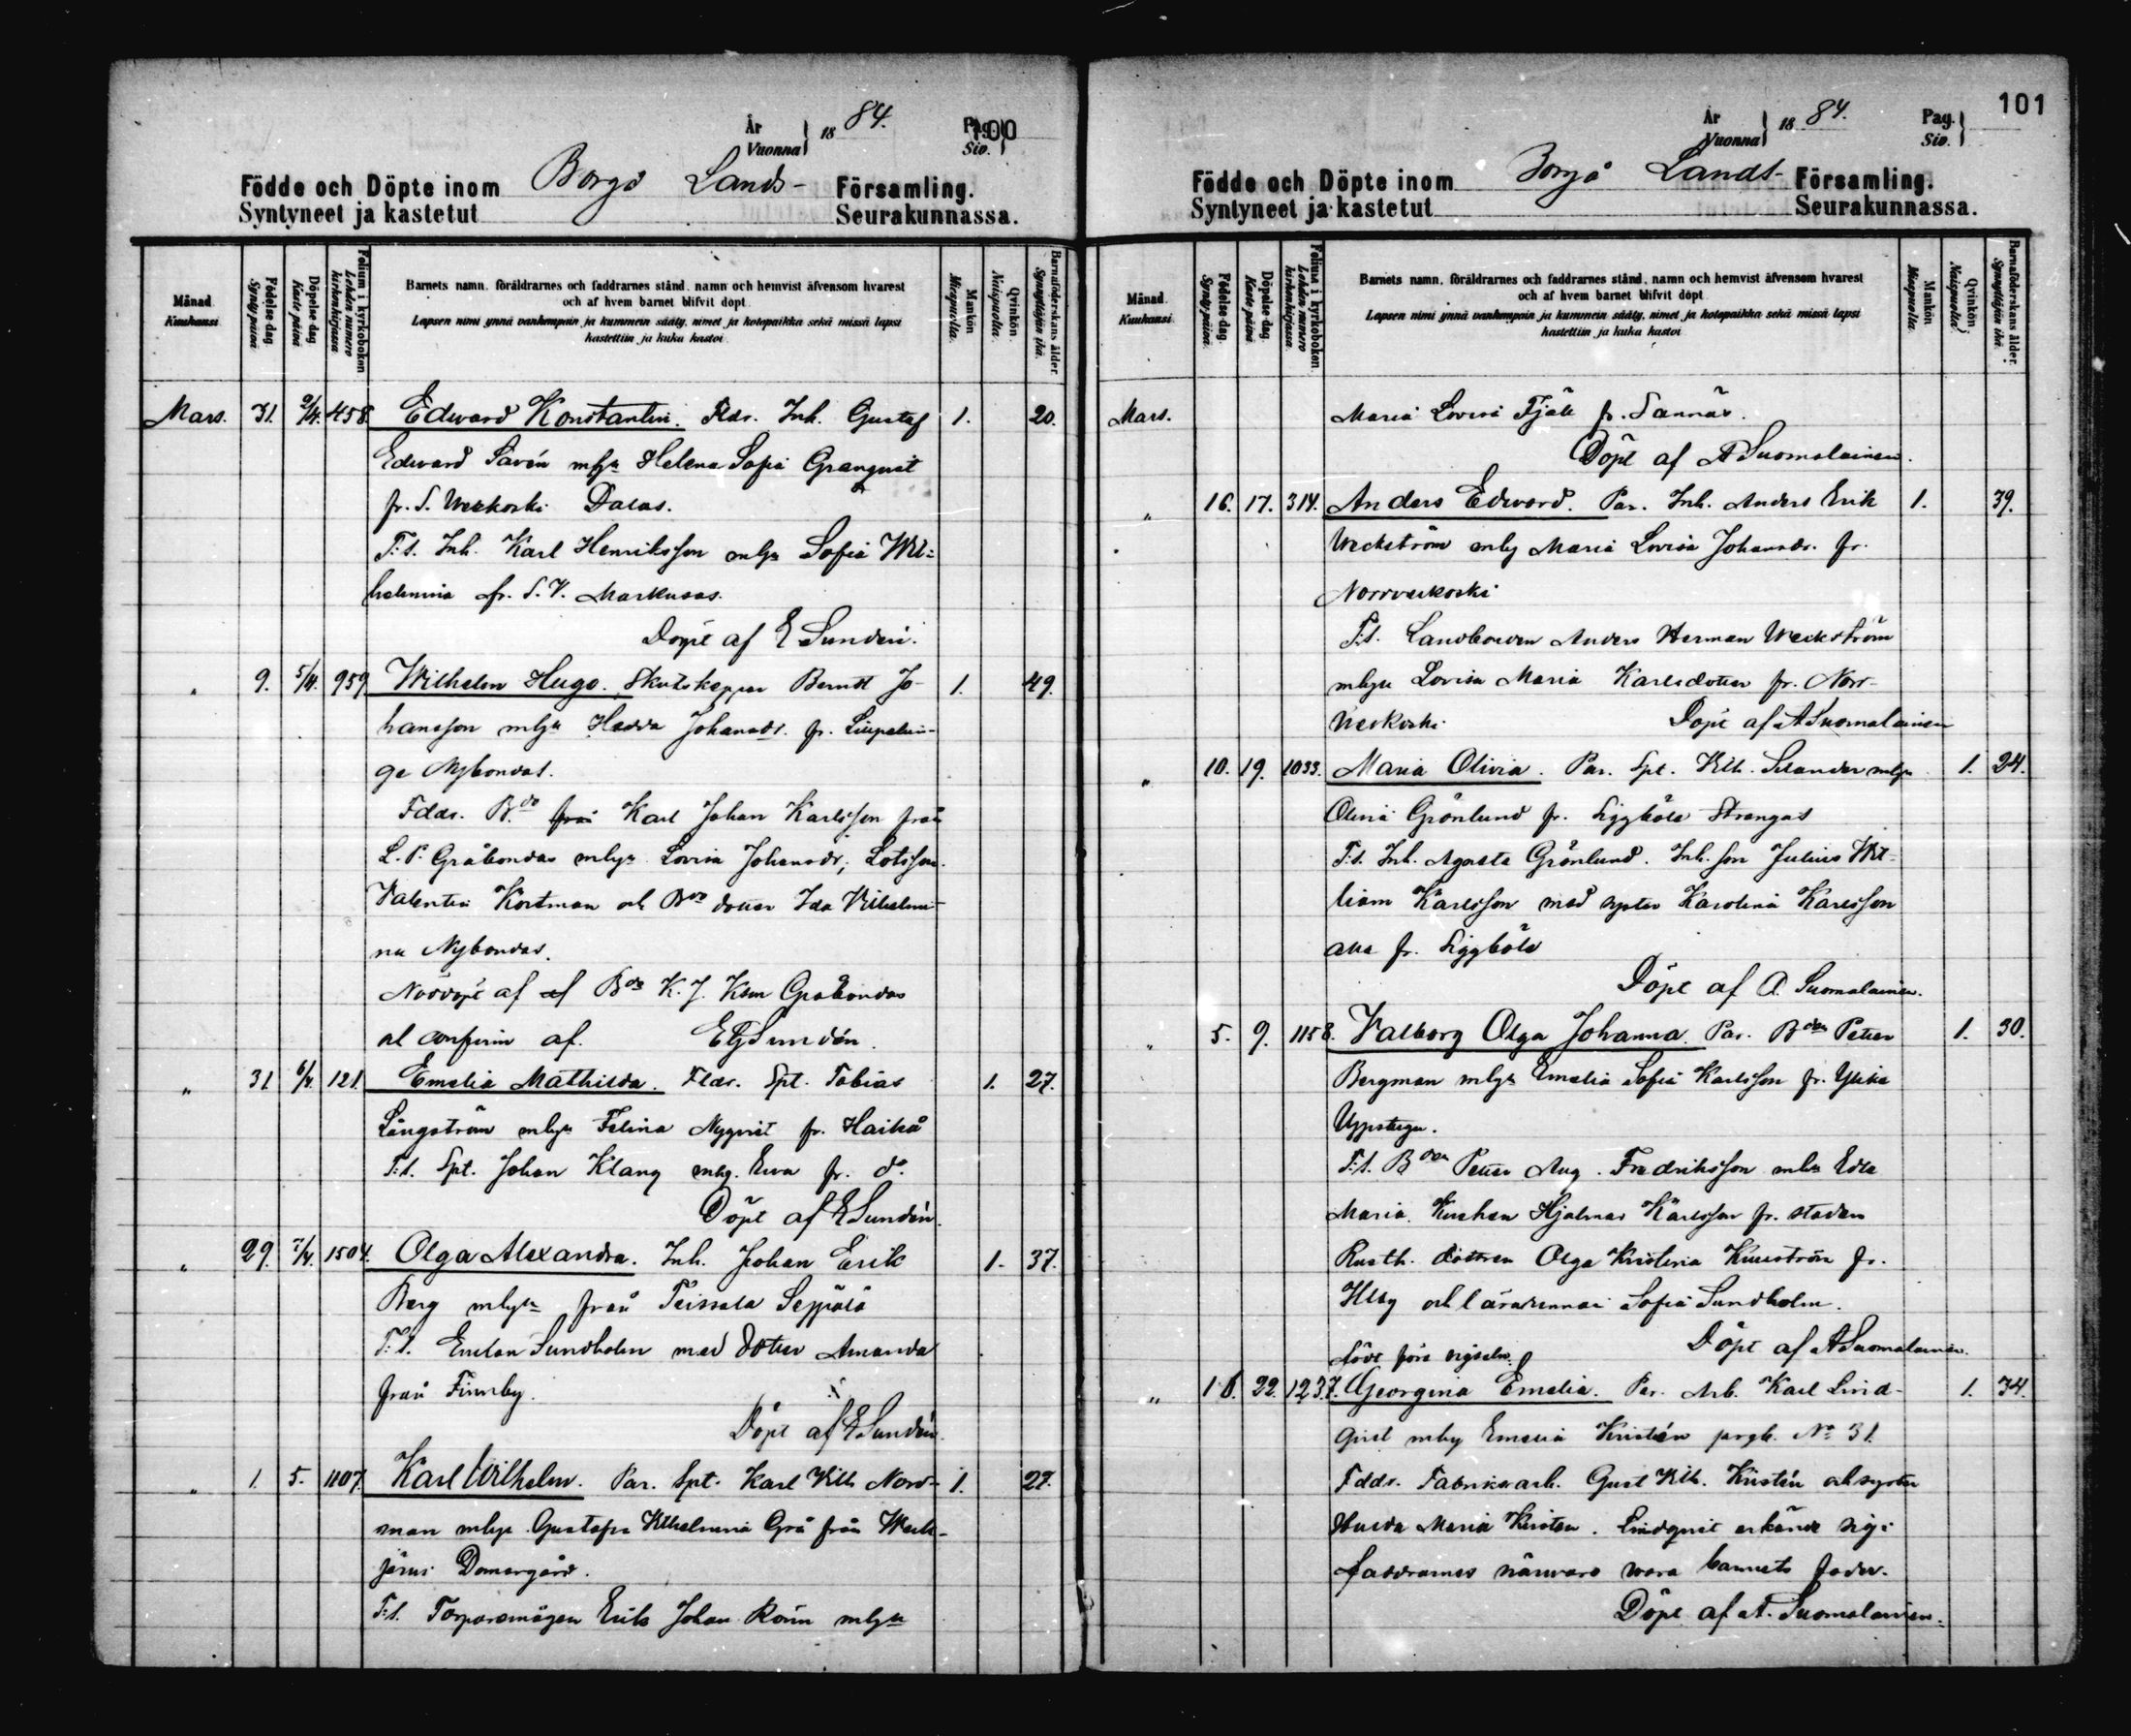 År
Vuonna
18 84.
Pag.
Siv.
100
Födde och Döpte inom Borgå Lands- Församling.
Syntyneet ja kastetut Seurakunnassa.
Månad
Kuukausi
Födelse dag.
Synty päivä
Döpelse dag
Kaste päivä
Folium i kyrkoboken
Lehden numero kirkonkirjassa
Barnets namn, föräldrarnes och faddrarnes stånd, namn och hemvist äfvensom hvarest
och af hvem barnet blifvit döpt.
Lapsen nimi ynnä vanhempain ja kummein sääty, nimet ja kotopaikka sekä missä lapsi
kastettiin ja kuka kastoi
Mankön
Miespuolta.
Qvinkön
Naispuolta.
Barnaföderskans ålder
Synnyttäjän ikä.
Mars. 31. 2/4. 458. Edward Konstantin. Fldr. Inh. Gustaf 1. 20.
Edward Savén mhu Helena Sofia Granqvist
fr. S. Weckoski Dalas.
T:s. Inh. Karl Henriksson mhu Sofia Wil-
helmina fr. S.V. Markusas.
Döpt af E Sundén.
" 9. 5/4. 959 Wilhelm Hugo. Skutskeppar Berndt Jo- 1. 49.
hansson mhu Hedda Johansdr. fr.
ge Nybondas.
Fddr. Bdo från Karl Johan Karlsson från
L.P. Gråbondas mhu Lovisa Johansdr, Lotsson
Valentin Körtman och Bdo dotter Ida Wilhelmi-
na Nybondas.
Nöddöpt af af Bds K. J. Ksn Gråbondas
och confirm af. E Sundén.
" 31 6/4. 121. Emelia Mathilda. Fldr. Spt. Tobias 1. 27.
Långström mhu Felina Nyqvist fr. Haikå
T:s. Spt. Johan Klang mhg. Ewa fr. do.
Döpt af E Sundén.
" 29. 7/4. 1504. Olga Alexandra. Inh. Johan Erik 1. 37.
Berg mhu från Teissala Seppälä
T:s. Enkan Sundholm med dotter Amanda
från Finnby.
Döpt af E Sundén
" 1. 5. 1107. Karl Wilhelm. Par. Spt. Karl Wilh Nord- 1. 27.
man mhu Gustafva Wilhelmina Grå från Weck-
järvi Domargård.
T:s. Torparemågen Erik Johan mhu
År
Vuonna
18 84.
Pag.
Siv.
101
Födde och Döpte inom Borgå Lands- Församling.
Syntyneet ja kastetut Seurakunnassa.
Månad
Kuukausi
Födelse dag.
Synty päivä.
Döpelse dag
Kaste päivä
Folium i kyrkoboken
Lehden numero kirkonkirjassa.
Barnets namn, föräldrarnes och faddrarnes stånd, namn och hemvist äfvensom hvarest
och af hvem barnet blifvit döpt
Lapsen nimi ynnä vanhempain ja kummein sääty, nimet ja kotopaikka sekä missä lapsi
kastettiin ja kuka kastoi
Mankön
Miespuolta.
Qvinkön
Naispuolta
Barnaföderskans ålder
Synnyttäjän ikä.
Mars. Maria Lovisa Fjäll fr. Sannäs.
Döpt af A Suomalainen.
" 16. 17. 314. Anders Edward. Par. Inh. Anders Erik 1. 39.
Weckström mhg Maria Lovisa Johansdr. fr.
Norrveckoski
T:s. Landbonden Anders Herman Weckström
mhu Lovisa Maria Karlsdotter fr. Norr-
veckoski. Döpt af A Suomalainen
" 10. 19. 1033. Maria Olivia. Par. Spt. Wilh. Selander mhu 1. 24.
Olivia Grönlund fr. Siggböle Strengas
T:s. Inh. Agosta Grönlund. Inh. son Julius Wil-
liam Karlsson med syster Karolina Karlsson
alla fr. Siggböle
Döpt af A. Suomalainen.
" 5. 9. 1158. Valborg Olga Johanna. Par. Bden Petter 1. 30.
Bergman mhu Emelia Sofia Karlsson fr.
Uppstuga.
T:s. Bden Petter Aug. Fredriksson mhu Edla
Maria. Kusken Hjalmar Karlsson fr. staden
Rusth. dottren Olga Kristina fr.
och lärarinnan Sofia Sundholm.
född före vigseln. Döpt af A Suomalainen.
" 16. 22. 1237. Georgina Emelia. Par. Arb. Karl Lind- 1. 34.
qvist mhg Emelia Kristén prgb. No 31.
Fddr. Fabriksarb. Gust Wilh. Kristén och syster
Hulda Maria Kristén. Lindqvist erkände sig i
faddrarnes närvaro vara barnets fader.
Döpt af A. Suomalainen.